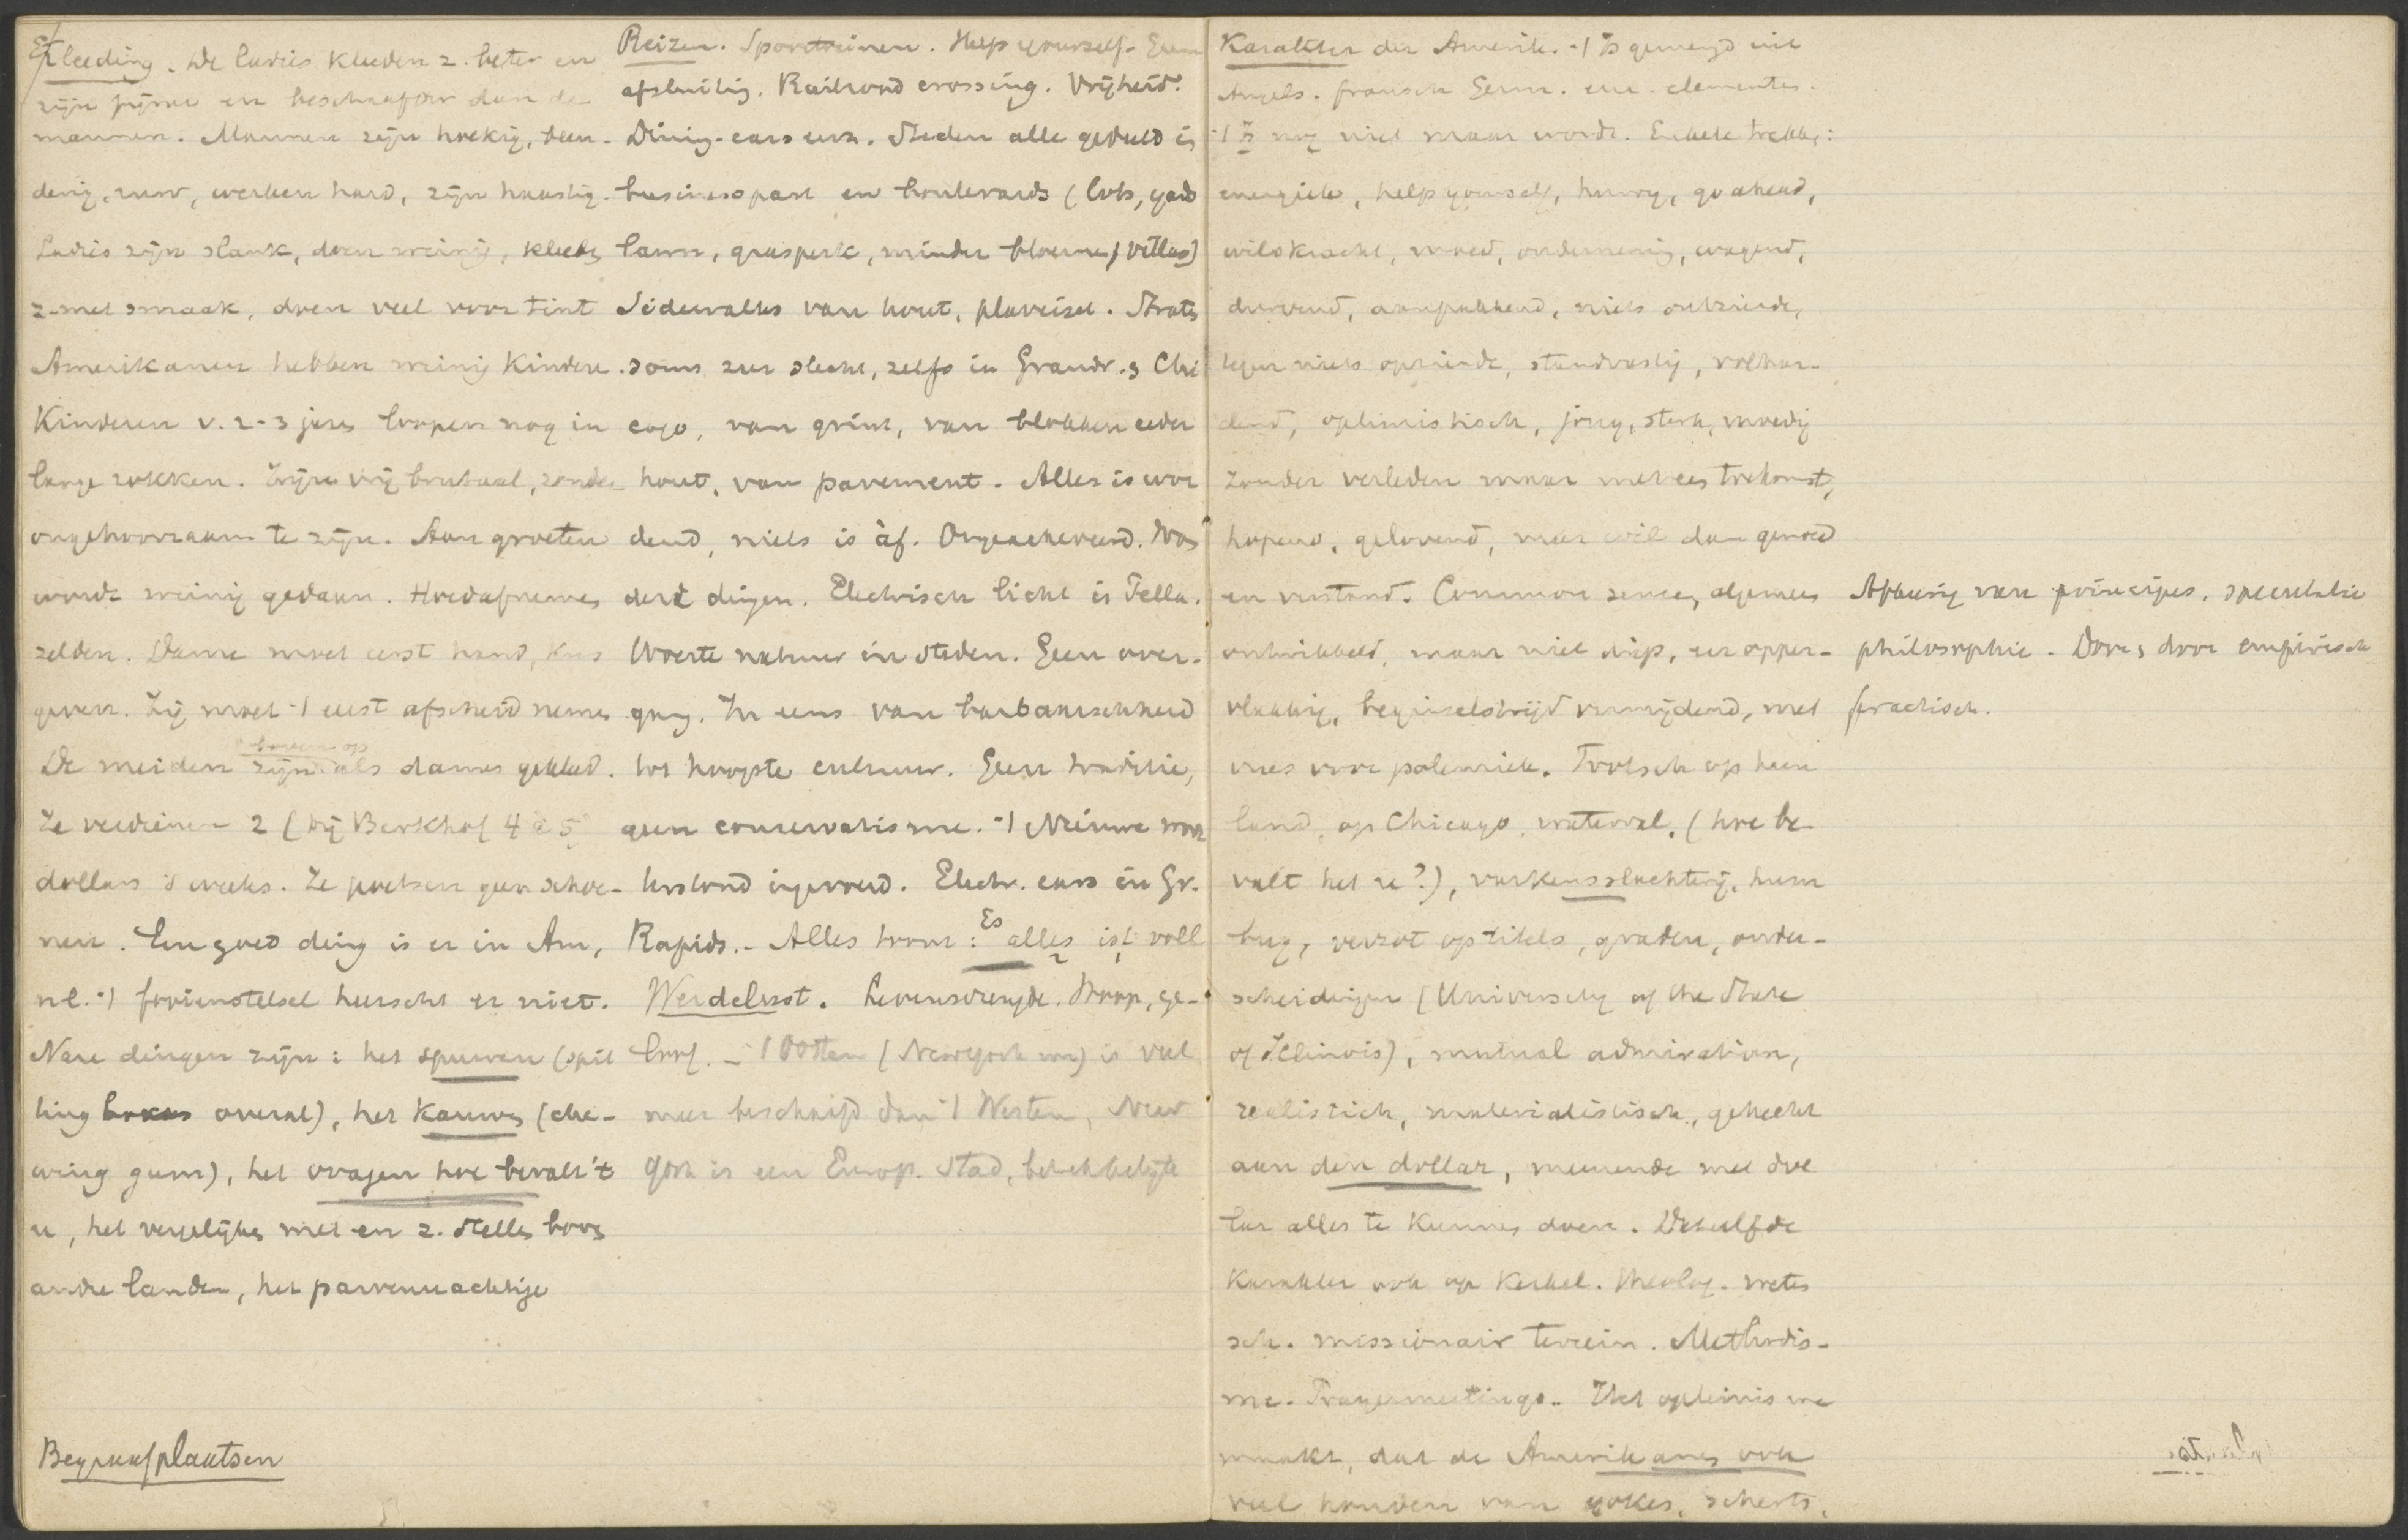 Kleeding. De ladies kleeden z. beter en
zijn fijner en beschaafder dan de
mannen. Mannen zijn hoekig, been-
derig, ruw, werken hard, zijn haastig.
Ladies zijn slank, doen weinig, kleeden
z. met smaak, doen veel voor tint
Amerikanen hebben weinig kinderen.
Kinderen v. 2-3 jaren loopen nog in
lange rokken. Zijn vrij brutaal, zonder
ongehoorzaam te zijn. Aan groeten
wordt weinig gedaan. Hoedafnemen
zelden. Dame moet eerst hand, kus
geven. Zij moet 't eerst afscheid nemen
De meiden zijn als dames gekleed.
Ze verdienen 2 (bij Berkhof 4 à 5
dollars 's weeks. Ze poetsen geen schoe-
nen. Een goed ding is er in Am,
nl. 't fooienstelsel heerscht er niet.
Nare dingen zijn: het spuwen (spit
ting boxes overal), het kauwen (che-
wing gum), het vragen hoe bevalt 't
u, het vergelijken met en z. stellen boven
andre landen, het parvenuachtige
Begraafplaatsen
Reizen. Spoortreinen. Help yourself. Geen
afsluiting. Railroad crossing. Vrijheid.
Dining-cars enz. Steden alle gedeeld in
businesspart en boulevards (lots, yard
lawn, grasperk, minder bloemen, villas)
Sidewalks van hout, plaveisel. Straten
soms zeer slecht, zelfs in Grandr. & Chi
cago, van grint, van blokken ceder
hout, van pavement. Alles is wor
dend, niets is àf. Ongeacheveerd. Won
dere dingen. Electrisch licht is Fella.
Woeste natuur in steden. Geen over-
gang. In eens van barbaarschheid
tot hoogste cultuur. Geen traditie,
geen conservatisme. 't Nieuwe
terstond ingevoerd. Electr. cars in Gr.
Rapids. - Alles toont: Es alles ist voll
Werdelust. Levensvreugde. Hoop, ge-
loof. - 't Oosten (Newyork enz) is veel
meer beschaafd dan 't Westen, New
York is een Europ. stad, betrekkelijk
Karakter der Amerik. 't Is gemengd uit
Angels. fransch Germ. enz. elementen.
't Is nog niet maar wordt. Enkele trekken:
energiek, help yourself, hurry, go ahead,
wilskracht, moed, onderneming, wagend,
durvend, aanpakkend, niets ontziende,
tegen niets opziende, standvastig, volhar-
dend, optimistisch, jong, sterk, moedig
zonder verleden maar met een toekomst,
hopend, geloovend, meer wil dan gemoed
en verstand. Common sense, algemeen
ontwikkeld, maar niet diep, eer opper-
vlakkig, beginselstrijd vermijdend, met
vrees voor polemiek. Trotsch op hun
land, op Chicago, waterval, (hoe be-
valt het u?), varkensslachterij, hum
bug, verzot op titels, graden, onder-
scheidingen (University of the State
of Illinois), mutual admiration,
realistisch, materialistisch, gehecht
aan den dollar, meenende met dol
lar alles te kunnen doen. Datzelfde
karakter ook op kerkel. theolog. weten
sch. missionair terrein. Methodis-
me. Prayermeetings. Het optimisme
maakt, dat de Amerikanen ook
veel houden van yokes, scherts,
Afkeerig van principes, speculatie
philosophie. Door & door empirisch
practisch.